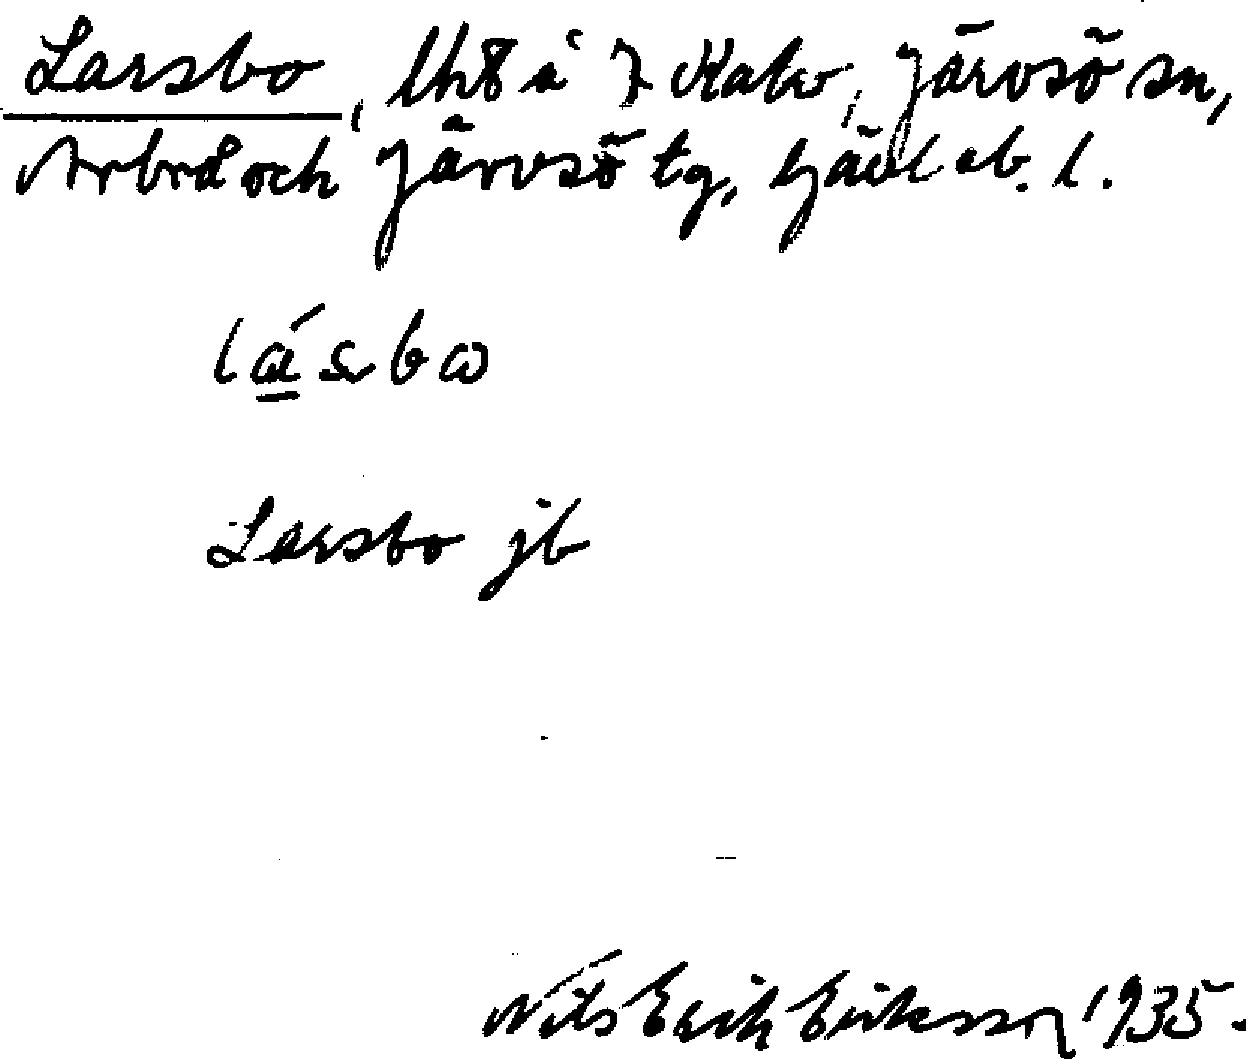 Larsbo, lht å 7 Kalv, Järvsö sn,
Arbrå och Järvsö tg, Gävleb. l.
lásbω
Larsbo jb
Nils Erik Eriksson 1935.